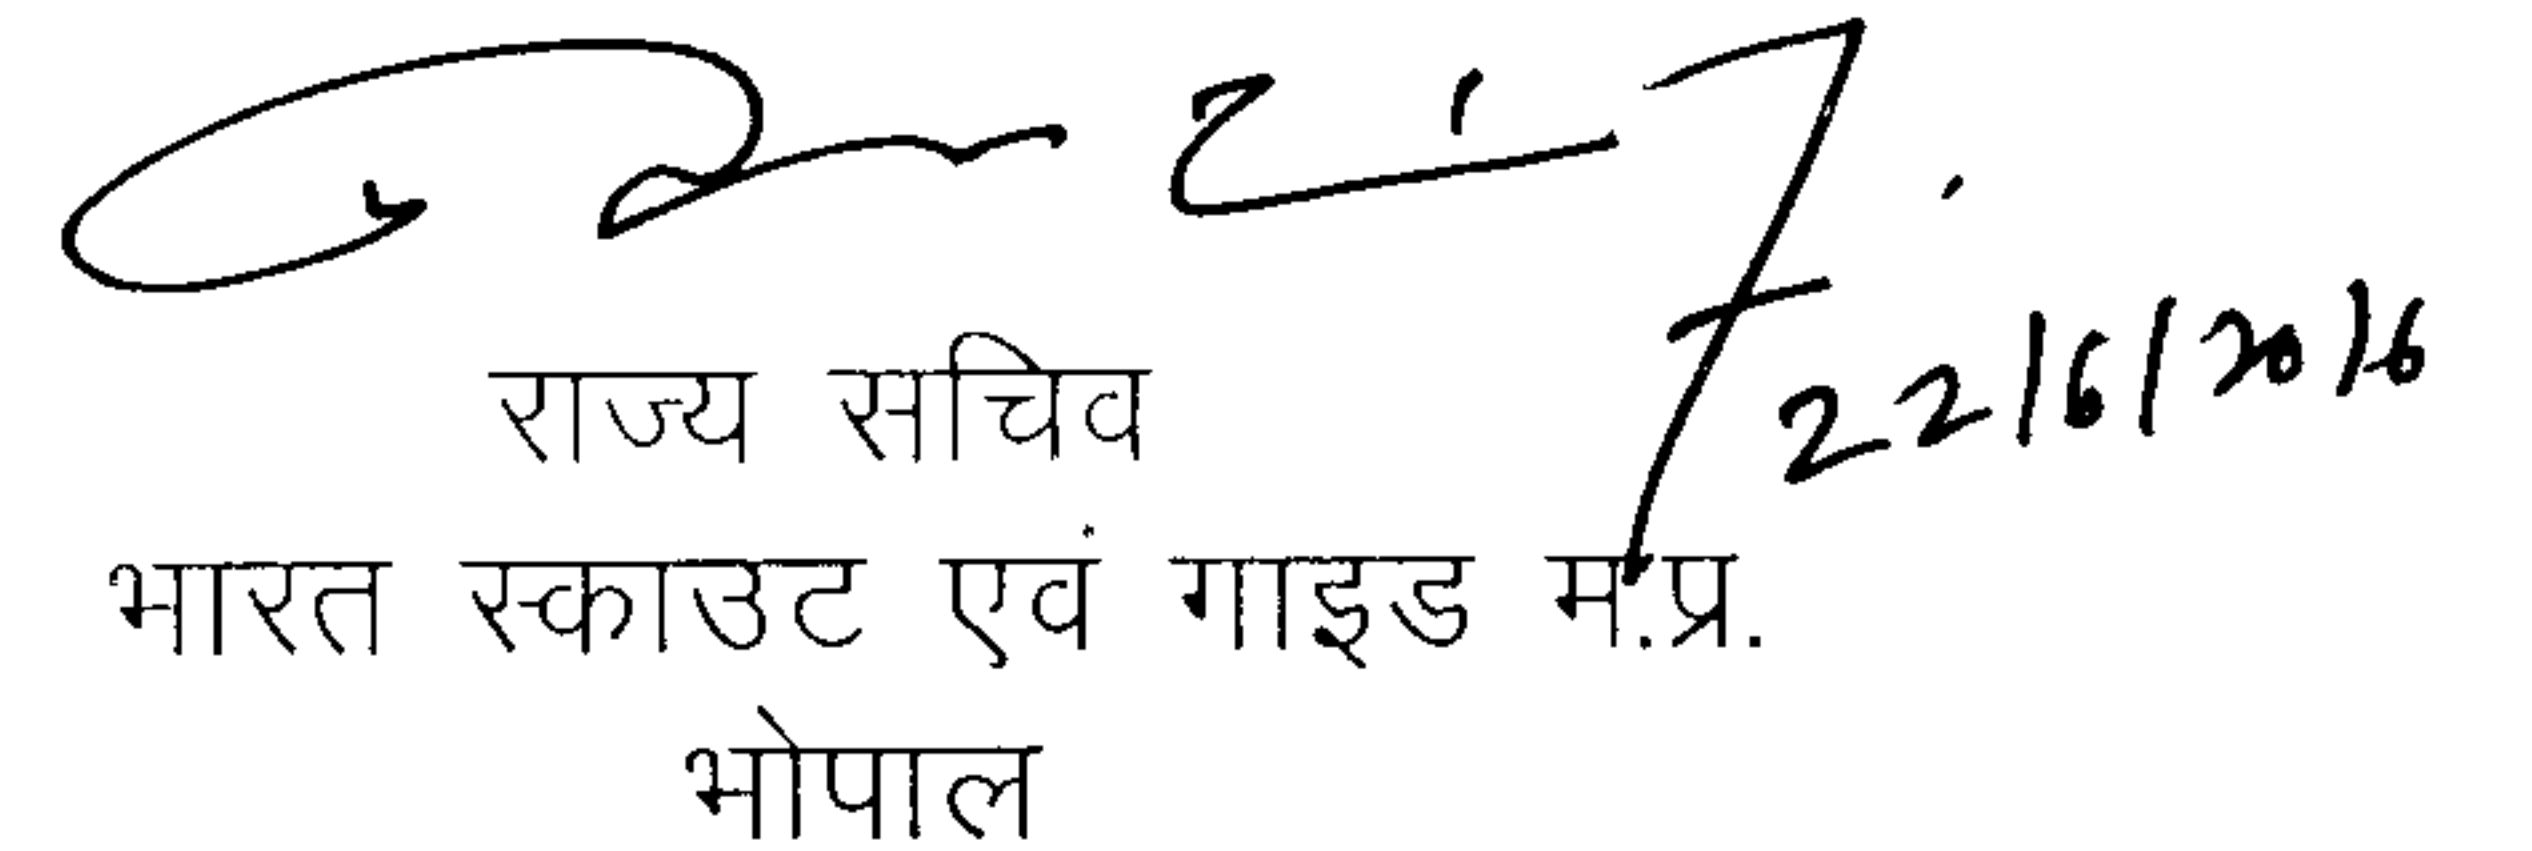 22/6/2016
राज्य सचिव
भारत स्काउट एवं गाइड म.प्र.
भोपाल